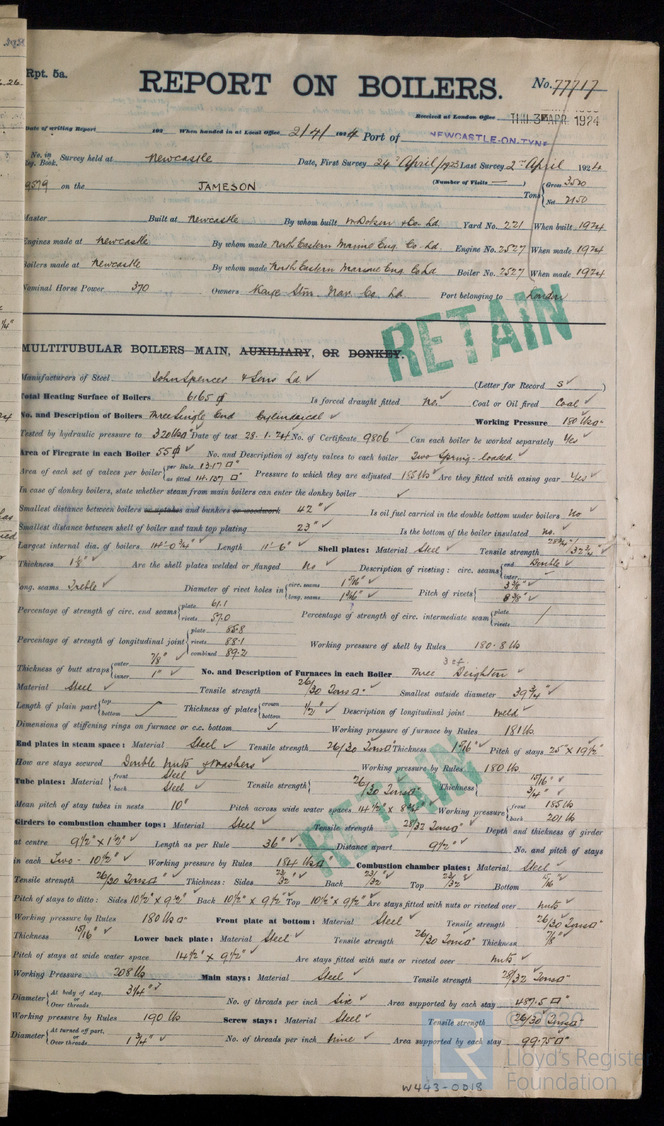 Rpt. 5a.
REPORT ON BOILERS.
No. 77717
Received at London Office THU 3 APR 1924
Date of writing Report 192 When handed in at Local Office 2/4/ 1924 Port of NEWCASTLE-ON-TYNE
No. in Reg. Book. Survey held at Newcastle Date, First Survey 24th April/1923 Last Survey 2nd April 1924
on the JAMESON (Number of Visits —) Tons {Gross 3520 Net 2150
Master Built at Newcastle By whom built Wm Dobson & Co. Ld Yard No. 221 When built 1924
Engines made at Newcastle By whom made North Eastern Marine Eng. Co. Ld. Engine No. 2527 When made 1924
Boilers made at Newcastle By whom made North Eastern Marine Eng Co Ld Boiler No. 2527 When made 1924
Nominal Horse Power 370 Owners Kaye Stm. Nav. Co. Ld Port belonging to London
RETAIN
MULTITUBULAR BOILERS MAIN, AUXILIARY, OR DONKEY.
Manufacturers of Steel John Spencer & Sons Ld ✓ (Letter for Record S ✓)
Total Heating Surface of Boilers 6165 ф Is forced draught fitted No. ✓ Coal or Oil fired Coal ✓
No. and Description of Boilers Three Single End Cylindrical ✓ Working Pressure 180 lbs
Tested by hydraulic pressure to 320 lbs Date of test 28.1.24 No. of Certificate 9806 Can each boiler be worked separately Yes ✓
Area of Firegrate in each Boiler 55 ф ✓ No. and Description of safety valves to each boiler Two Spring-loaded ✓
Area of each set of valves per boiler {per Rule 13.17 □" as fitted 14.137 □" Pressure to which they are adjusted 185 lbs ✓ Are they fitted with easing gear Yes ✓
In case of donkey boilers, state whether steam from main boilers can enter the donkey boiler ✓
Smallest distance between boilers or uptakes and bunkers or woodwork 42" ✓ Is oil fuel carried in the double bottom under boilers No ✓
Smallest distance between shell of boiler and tank top plating 23" ✓ Is the bottom of the boiler insulated No. ✓
Largest internal dia. of boilers Length 11'-6" ✓ Shell plates: Material Steel ✓ Tensile strength
Thickness Are the shell plates welded or flanged No ✓ Description of riveting: circ. seams {end Double ✓ inter.
long. seams Treble ✓ Diameter of rivet holes in {circ. seams 1 5/16" ✓ long. seams Pitch of rivets {
Percentage of strength of circ. end seams {plate 61.1 rivets 57.0 Percentage of strength of circ. intermediate seam {plate rivets /
Percentage of strength of longitudinal joint {plate 85.8 rivets 88.1 combined 89.2 Working pressure of shell by Rules 180.8 lb
Thickness of butt straps {outer 7/8" ✓ inner 1" ✓ No. and Description of Furnaces in each Boiler Three Deighton ✓
Material Steel ✓ Tensile strength 26/30 Tons □" ✓ Smallest outside diameter 39 3/4" ✓
Length of plain part {top bottom ✓ Thickness of plates {crown bottom 1/2" ✓ Description of longitudinal joint Weld ✓
Dimensions of stiffening rings on furnace or c.c. bottom ✓ Working pressure of furnace by Rules 181 lb
End plates in steam space: Material Steel ✓ Tensile strength 26/30 Tons □" Thickness ✓ Pitch of stays 25" X 19 1/2" ✓
How are stays secured Double Nuts & Washers ✓ Working pressure by Rules 180 lb
Tube plates: Material {front Steel ✓ back Steel ✓ Tensile strength { 26/30 Tons □" Thickness { 15/16" ✓ 3/4" ✓
Mean pitch of stay tubes in nests 10" Pitch across wide water spaces 14 1/2" X ✓ Working pressure {front 185 lb back 201 lb
Girders to combustion chamber tops: Material Steel ✓ Tensile strength 28/32 Tons □" Depth and thickness of girder
at centre 9 1/2" X 1 1/2" ✓ Length as per Rule 36" ✓ Distance apart 9 1/2" ✓ No. and pitch of stays
in each Two - 10 1/2" ✓ Working pressure by Rules 184 lbs □" Combustion chamber plates: Material Steel ✓
Tensile strength 26/30 Tons □" ✓ Thickness: Sides 23/32" ✓ Back 23/32 ✓ Top 23/32 ✓ Bottom
Pitch of stays to ditto: Sides 10 1/2" X 9 1/2" Back 10 1/2" X 9 1/2" Top 10 1/2" X 9 1/2" Are stays fitted with nuts or riveted over Nuts ✓
Working pressure by Rules 180 lb □ Front plate at bottom: Material Steel ✓ Tensile strength 26/30 Tons □"
Thickness 15/16" ✓ Lower back plate: Material Steel ✓ Tensile strength 26/30 Tons □" Thickness 7/8"
Pitch of stays at wide water space 14 1/2" X 9 1/2" ✓ Are stays fitted with nuts or riveted over Nuts ✓
Working Pressure 208 lb Main stays: Material Steel ✓ Tensile strength 28/32 Tons □"
Diameter {At body of stay, or Over threads 3 1/4" ✓ No. of threads per inch Six ✓ Area supported by each stay 487.5 □" ✓
Working pressure by Rules 190 lb Screw stays: Material Steel ✓ Tensile strength 26/30 Tons □"
Diameter {At turned off part, or Over threads 1 3/4" ✓ No. of threads per inch Nine ✓ Area supported by each stay 99.750" ✓
RETAIN
© 2020
LR Lloyd's Register
Foundation
W443-0018